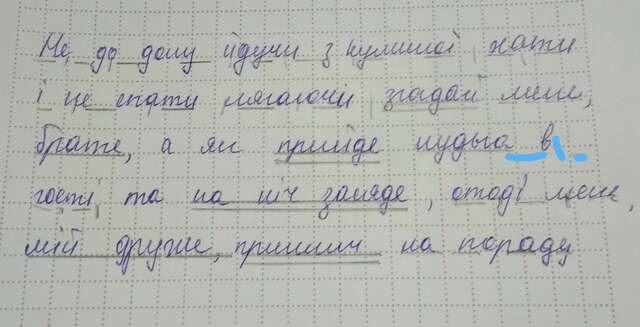 Не до долу йдучи з кумишої хати
і не спати лягаючи згадай мене,
брате, а як прийде нудьга в
гості та на ніч заляде, отоді мене,
мій друже, приклич на пораду